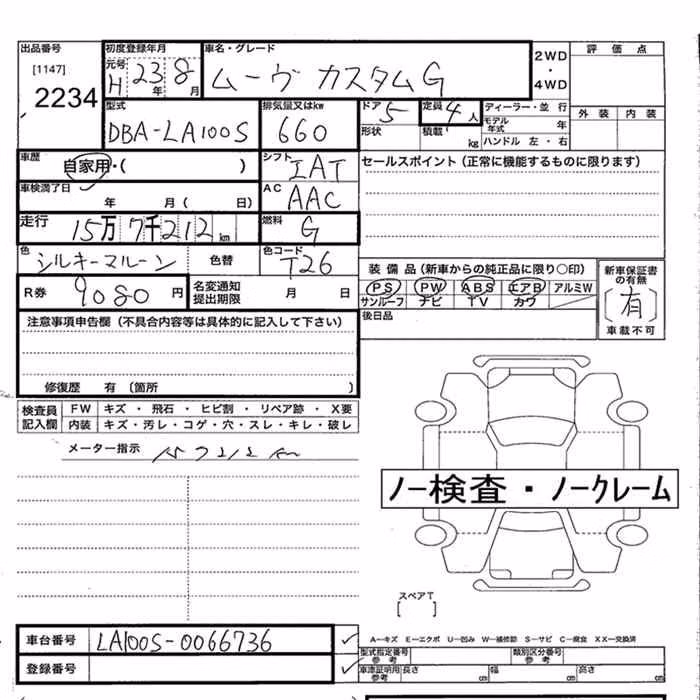 出品番号 初度登録年月 車名・グレード 2WD ・ 4WD 評価点
[1147] 元号 H 23 年 8 月 ムーヴ カスタムG
2234
型式 排気量又はkw ドア 5 定員 4 人 ディーラー・並 行 外装 内装
DBA-LA100S 660 形状 積載 kg モデル年式 年
ハンドル 左・右
車歴 自家用・( ) シフト IAT セールスポイント（正常に機能するものに限ります）
車検満了日 年 月( 日) AC AAC
走行 15万 7千212 km 燃料 G
色 シルキーマルーン 色替 色コード T26
装備品（新車からの純正品に限り○印） 新車保証書の有無
R券 9080 円 名変通知提出期限 月 日 PS PW ABS エアB アルミW [有]
サンルーフ ナビ TV カワ 車載不可
注意事項申告欄（不具合内容等は具体的に記入して下さい） 後日品
修復歴 有（箇所 ）
検査員記入欄 FW キズ・飛石・ヒビ割・リペア跡・X要
内装 キズ・汚レ・コゲ・穴・スレ・キレ・破レ
メーター指示 157212km
ノー検査・ノークレーム
スペアT
[ ]
車台番号 LA100S-0066736 ✓ A―キズ E―エクボ U―凹み W―補修跡 S―サビ C―腐食 XX―交換済
登録番号 ✓ 型式指定番号 参考 類別区分番号 参考
車庫証明用 参考 長さ cm 幅 cm 高さ cm